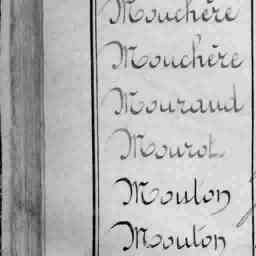 Mouchère
Mouchère
Mouraud
Mourot
Mouton
Mouton